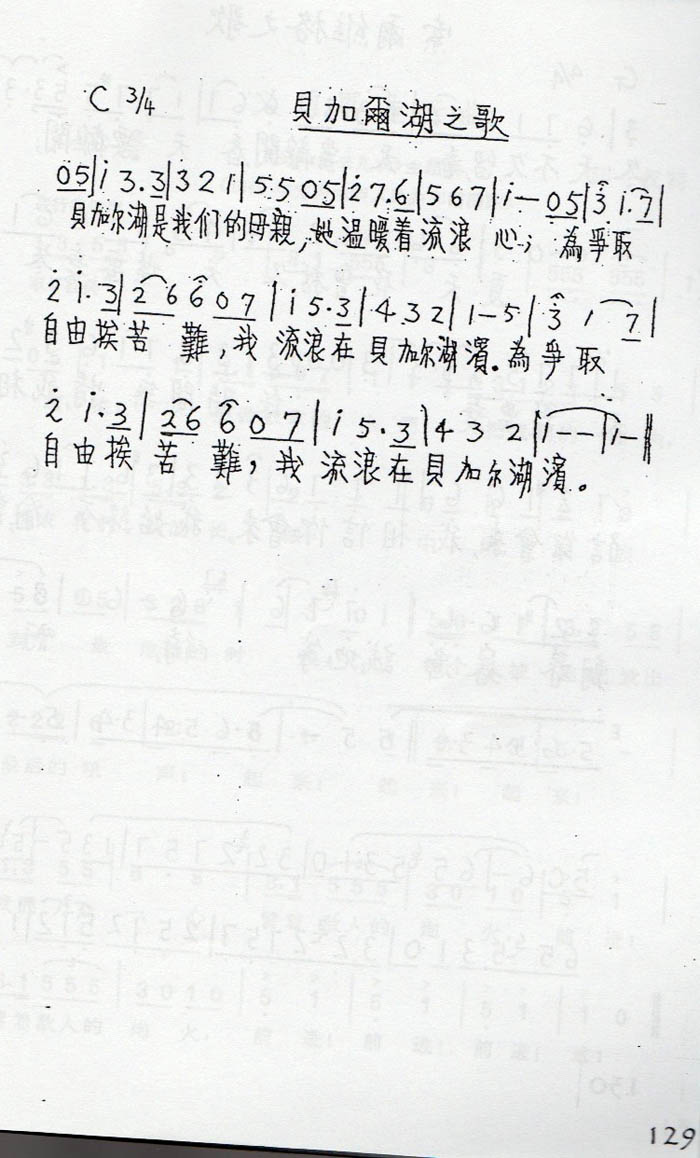 C 3/4 貝加爾湖之歌
05|i 3.3|3 2 1|5.5 05|2̇7.6|5 6 7|i– 05|3̇ i.7|
貝加尔湖是我们的母親，她温暖着流浪 心；為爭取
2̇ i.3|2 6 6 0 7|i 5.3|4.3 2|1–5|3̇ 1 7|
自由挨苦 難，我 流浪在貝加尔湖濱。為爭取
2̇ i.3|2 6 6 0 7|i 5.3|4 3 2|1 – –|1–‖
自由挨 苦 難，我 流浪在貝加尔湖濱。
129